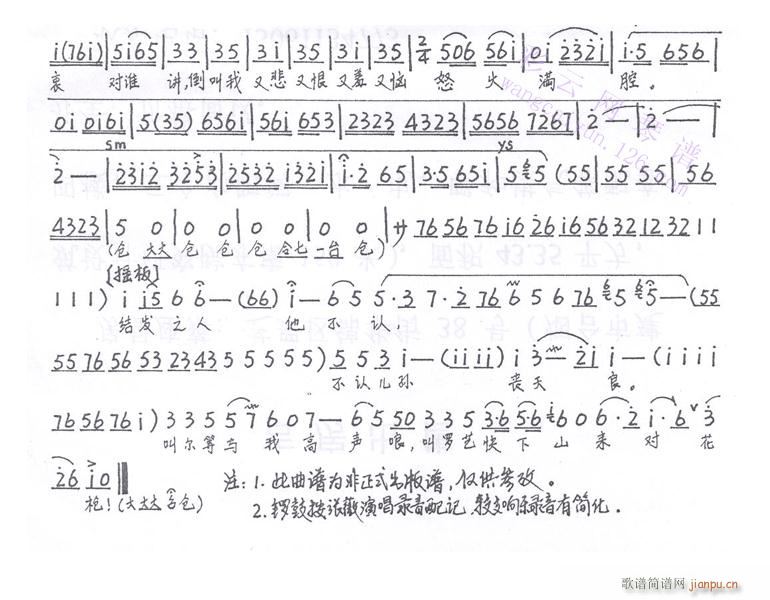 i(76i) | 5i65 | 33 | 35 | 3i | 35 | 3i | 35 | 2/4 506 56i | 0i 232i | i·5 656 |
哀 对谁 讲,倒叫我 又悲又恨又羞又恼 怒 火 满 腔。
0i 0i6i | 5(35) 656i | 56i 653 | 2323 4323 | 5656 7267 | 2 — | 2 — |
sm ys
2 — | 23i2 3253 | 2532 i32i | i·2 65 | 3·5 65i | 5 5 (55 | 55 55 | 56
4323 | 5 0 | 0 0 | 0 0 | 0 0 | 76 56 76 i6 26 i6 56 32 12 32 11
(仓 大大 仓 仓 仓 仓七 一台 仓)
[摇板]
111) i i5 6 6 — (66) i — 6 5 5·3 7·2 76 6 5 6 76 5 5 — (55
结发之人 他不认,
55 76 56 53 23 43 5 5 5 5 5) 5 5 3 i — (i i i i) i 3 — 2i i — (i i i i
不认儿孙 丧天 良。
76 56 76 i) 3 3 5 5 7 6 0 7 — 6 5 50 3 3 5 3·6 5·6 6 0 0 6·2 i·6 3
叫尔等与我高声喊,叫罗艺快下山来对花
26 i0
枪!(大大大 仓)
注:1. 此曲谱为非正式出版谱,仅供参考。
2. 锣鼓按张徽演唱录音配记,较交响乐录音有简化。
歌谱简谱网 jianpu.cn